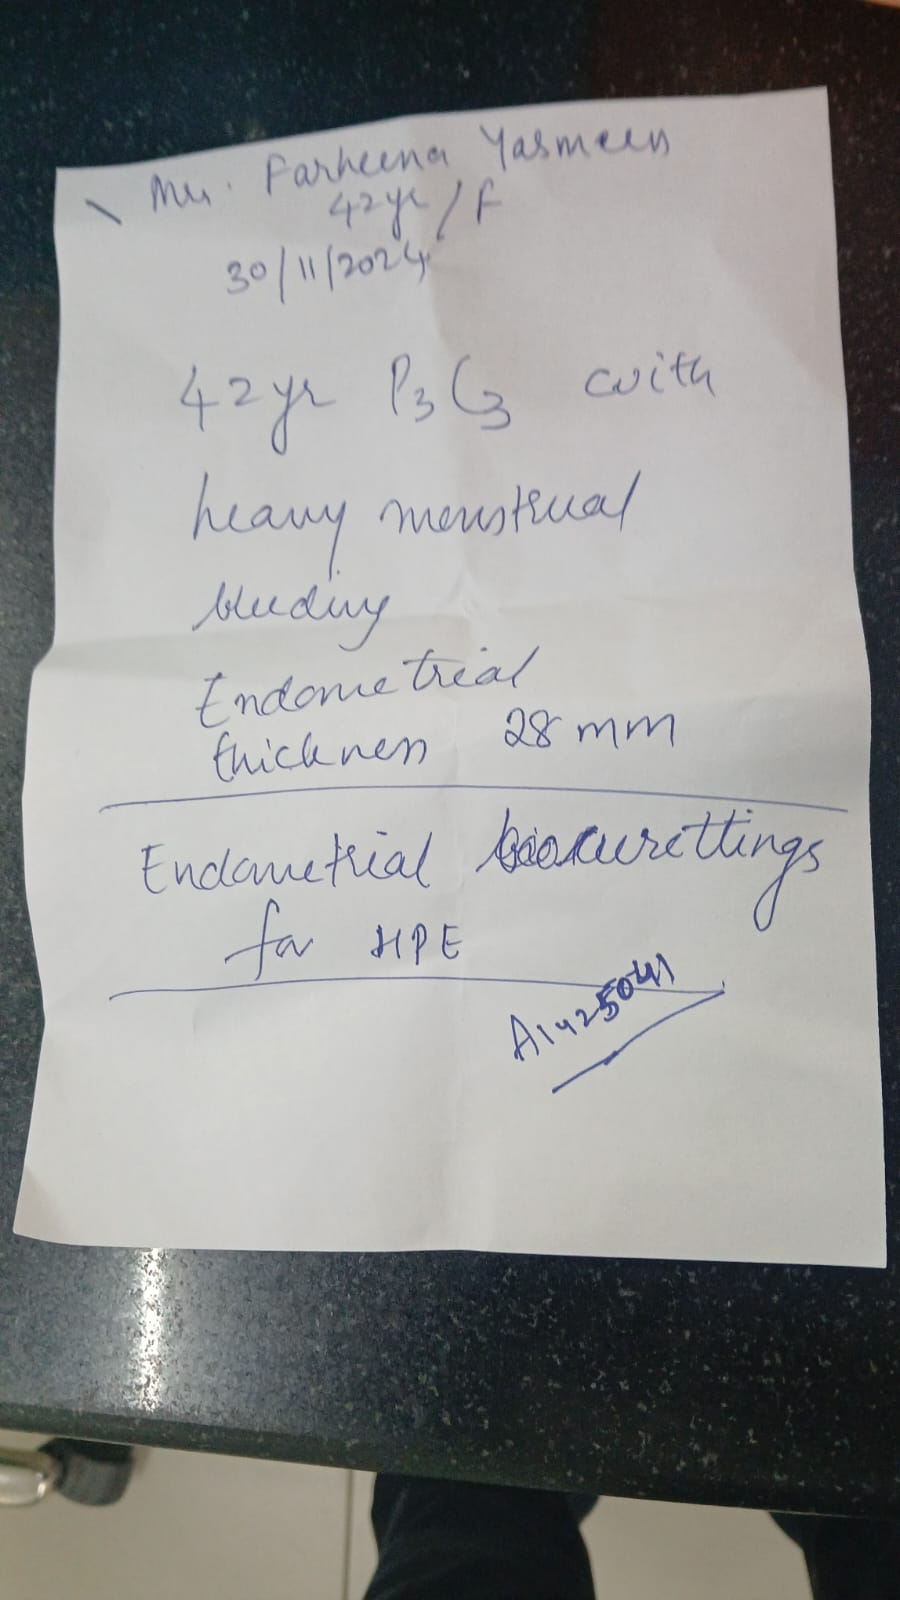 Mrs. Farheena Yasmeen
42yr/F
30/11/2024
42yr P3G3 with
heavy menstrual
bleeding
Endometrial
thickness 28 mm
Endometrial curettings
for HPE
A1425041